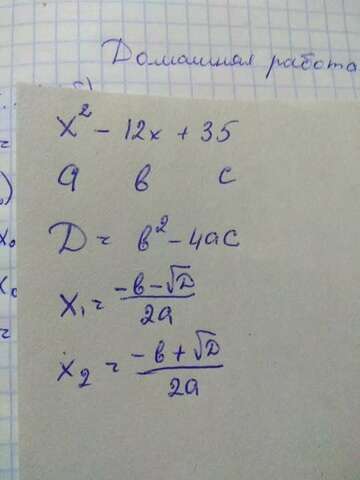 Домашняя работа
x² - 12x + 35
a в c
D = в² - 4ac
x₁ = (-в - √D) / 2a
x₂ = (-в + √D) / 2a